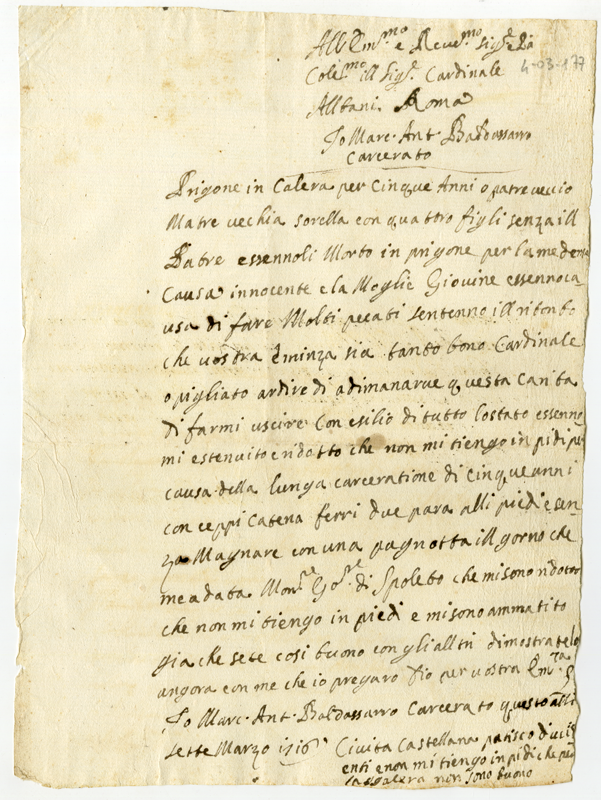 All Em.mo e Reve.mo Sig.re Pā
Cole.mo ill Sig.r Cardinale
4-03-177
Allbani. Roma
Io Marc. Ant. Baldassarro
Carcerato
Prigone in Calera per Cinque Anni o patre veccio
Matre vechia sorella con quatoro figli senza ill
Patre essennoli Morto in prigone per la medema
Causa innocente e la Moglie Giovine essenno ca
usa di fare Molti pecati sentenno ill ribonbo
che vostra Eminza sia tanto bono Cardinale
o pigliato ardire di adimanarve questa Carita
di farmi uscire Con esilio di tutto lo stato essenno
mi estenuito e ridotto che non mi tiengo in pidi pe
causa della lunga carceratione di Cinque anni
con ceppi Catena ferri due para alli piedi e sen
za Magnare con una pagnotta ill gorno che
me a data Mon.re Go.re di Spoleto che mi sono ridotto
che non mi tiengo in piedi e mi sono ammatito
gia che sete cosi buono con gli alltri dimostratelo
angora con me che io pregaro Dio per vostra Em.za
Io Marc. Ant. Baldassarro Carcerato questo alli
sette Marzo 1716 Civita Castellana patisco di
enti e non mi tiengo in pidi che per
la galera non sono buono